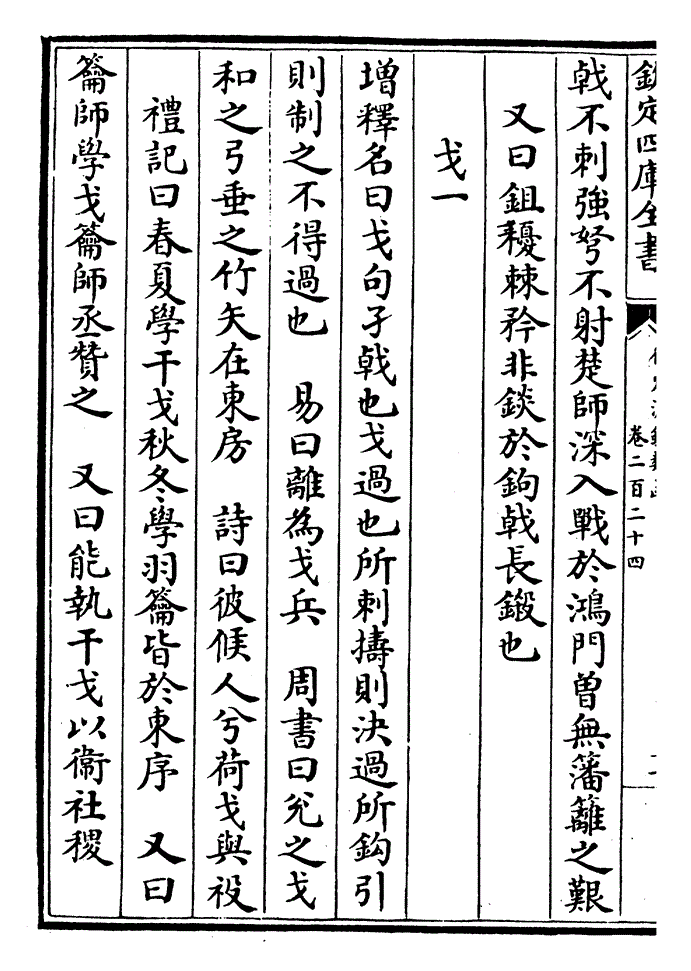 欽定四庫全書
卷二百二十四
戟不刺強弩不射楚師深入戰於鴻門曾無藩籬之艱
又曰鉏耰棘矜非錟於鉤戟長鎩也
戈一
增釋名曰戈句孑戟也戈過也所刺擣則決過所鈎引
則制之不得過也　易曰離為戈兵　周書曰兊之戈
和之弓垂之竹矢在東房　詩曰彼候人兮荷戈與祋
禮記曰春夏學干戈秋冬學羽籥皆於東序　又曰
籥師學戈籥師丞贊之　又曰能執干戈以衞社稷